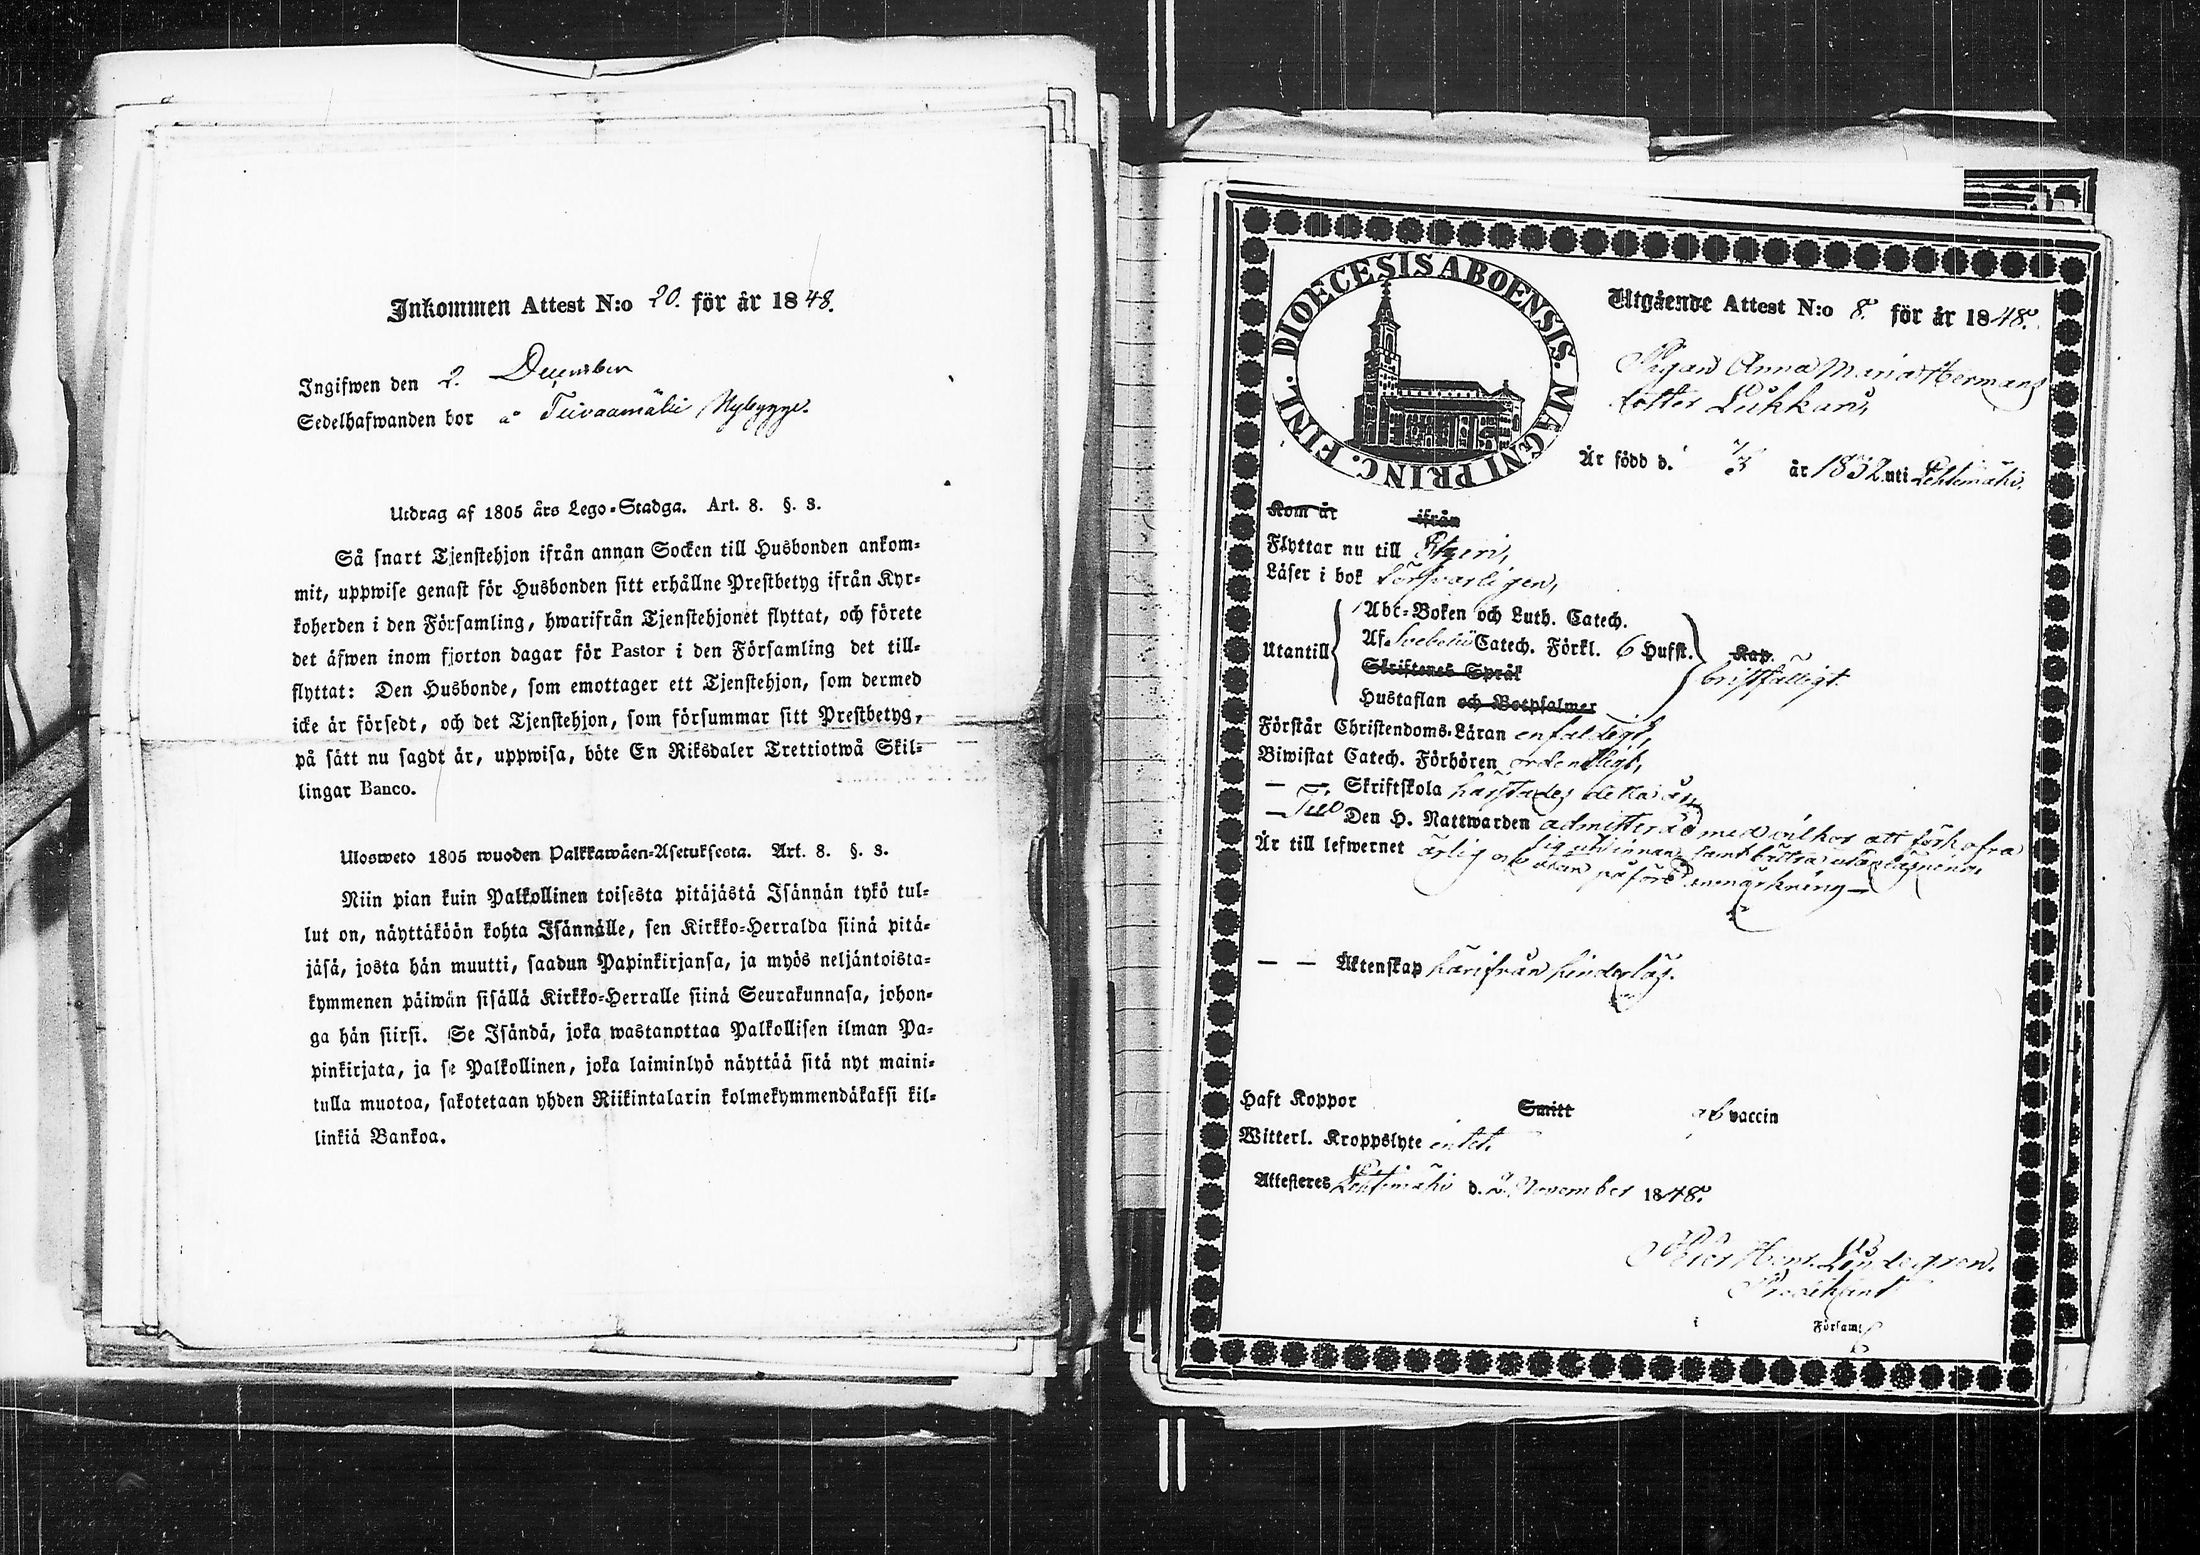 Inkommen Attest N:o 20. för år 1848.
Ingifwen den 2. December
Sedelhafwanden bor å Teivaamäki Nybygge.
Utdrag af 1805 års Lego-Stadga. Art. 8. §. 3.
Så snart Tjenstehjon ifrån annan Socken till Husbonden ankom-
mit, uppwise genast för Husbonden sitt erhållne Prestbetyg ifrån Kyr-
koherden i den Församling, hwarifrån Tjenstehjonet flyttat, och förete
det äfwen inom fjorton dagar för Pastor i den Församling det till-
flyttat: Den Husbonde, som emottager ett Tjenstehjon, som dermed
icke är försedt, och det Tjenstehjon, som försummar sitt Prestbetyg,
på sätt nu sagdt är, uppwisa, böte En Riksdaler Trettiotwå Skil-
lingar Banco.
Ulosweto 1805 wuoden Palkkawäen-Asetuksesta. Art. 8. §. 3.
Niin pian kuin Palkollinen toisesta pitäjästä Isännän tykö tul-
lut on, näyttäköön kohta Isännälle, sen Kirkko-Herralda siinä pitä-
jäsä, josta hän muutti, saadun Papinkirjansa, ja myös neljäntoista-
kymmenen päiwän sisällä Kirkko-Herralle siinä Seurakunnasa, johon-
ga hän siirsi. Se Isändä, joka wastanottaa Palkollisen ilman Pa-
pinkirjata, ja se Palkollinen, joka laiminlyö näyttää sitä nyt maini-
tulla muotoa, sakotetaan yhden Riikintalarin kolmekymmendäkaksi kil-
linkiä Bankoa.
DIOECESIS ABOENSIS. MAGNI PRINC. FINL.
Utgående Attest N:o 8. för år 1848.
Pigan Anna Maria Hermans
dotter Luhkan,
Är född d. 7/3 år 1832 uti Lehtimäki.
Kom år ifrån
Flyttar nu till Etzeri,
Läser i bok försvarligen,
Utantill
Abc-Boken och Luth. Catech.
Af Svebelii Catech. Förkl. 6 Hufst. Kap.
Skriftenes Språk
bristfälligt.
Hustaflan och Botpsalmer
Förstår Christendoms-Läran enfaldigt,
Biwistat Catech. Förhören ordentligt,
— — Skriftskola härstädes detta år,
— Till Den H. Nattwarden admitterad med vilkor att förkofra
sig uti innan samt bättra utanläsning.
Är till lefwernet ärlig och utan påförd anmärkning —
— — Äktenskap härifrån hinderlös.
Haft Koppor Smitt af vaccin
Witterl. Kroppslyte intet.
Attesteras Lehtimäki d. 2 November 1848.
Petter Henr. Lindegren.
Predikant
i Församl